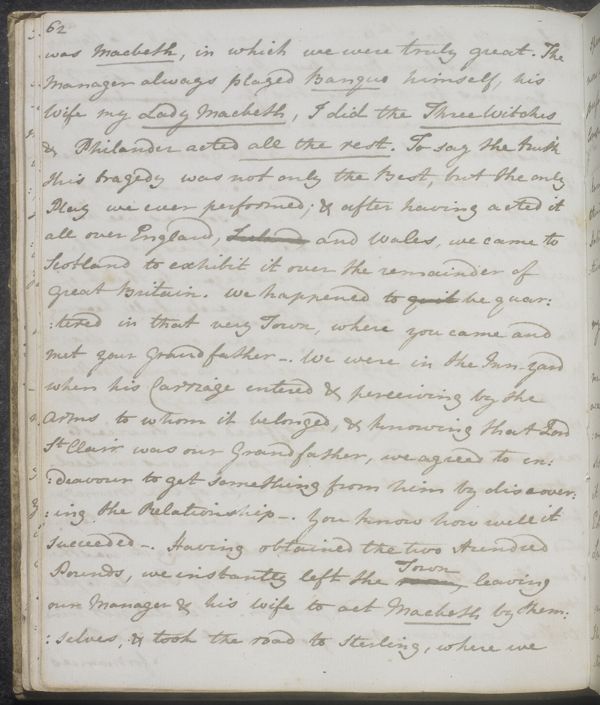 62
was Macbeth, in which we were truly great. The
Manager always played Banquo himself, his
Wife my Lady Macbeth, I did the Three Witches
& Philander acted all the rest. To say the truth
this tragedy was not only the Best, but the only
Play we ever performed; & after having acted it
all over England, Ireland and Wales, we came to
Scotland to exhibit it over the remainder of
Great Britain. We happened to quit be quar:
:tered in that very Town, where you came and
met your Grandfather-. We were in the Inn-yard
when his Carriage entered & perceiving by the
Arms to whom it belonged, & knowing that Lord
St Clair was our Grandfather, we agreed to en:
:deavour to get something from him by discover:
:ing the Relationship-. You know how well it
succeeded-. Having obtained the two Hundred
Pounds, we instantly left the Town, leaving
our Manager & his wife to act Macbeth by them:
:selves, & took the road to Sterling, where we